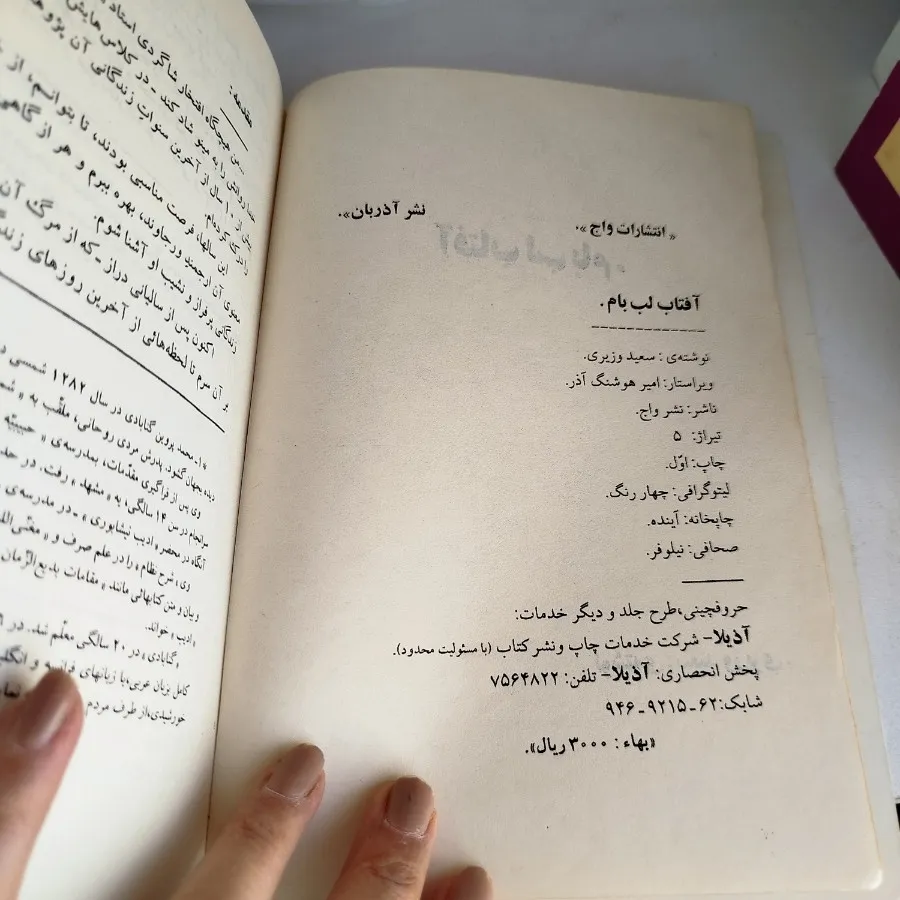 « انتشارات واج ». نشر آذربان».
آفتاب لب بام.
نوشته‌ی: سعید وزیری.
ویراستار: امیر هوشنگ آذر.
ناشر: نشر واج.
تیراژ: ۵
چاپ: اوّل.
لیتوگرافی: چهار رنگ.
چاپخانه: آینده.
صحافی: نیلوفر.
حروفچینی،طرح جلد و دیگر خدمات:
آذیلا- شرکت خدمات چاپ ونشر کتاب (با مسئولیت محدود).
پخش انحصاری: آذیلا- تلفن: ۷۵۶۴۸۲۲
شابک:۶۲-۹۲۱۵-۹۴۶
«بهاء : ۳۰۰۰ ریال».
مقدمه:
...من هیچگاه افتخار شاگردی استاد
روانش را به مینو شاد کند - در کلاس هایش
۱۰ سال از آخرین سنوات زندگانی آن
را درک کرده‌ام.
این سالها، فرصت مناسبی بودند، تا بتوانم، از
معنوی آن ارجمند ورجاوند، بهره ببرم و هر از گاهی
زندگانی پرفراز و نشیب او آشنا شوم.
اکنون پس از سالیانی دراز -که از مرگ آن
بر آن سرم تا لحظه‌هائی از آخرین روزهای
* ۱- محمد پروین گنابادی در سال ۱۲۸۲ شمسی در
دیده بجهان گشود. پدرش مردی روحانی، ملقّب به «
وی پس از فراگیری مقدّمات، بمدرسه‌ی « حبیبیّه
سرانجام در سن ۱۴ سالگی، به « مشهد » رفت. در
آنگاه در محضر « ادیب نیشابوری » - در مدرسه‌ی
وی « شرح نظام » را در علم صرف و «
وبیان و متن کتابهائی مانند « مقامات بدیع الزّمان
« ادیب » خواند.
« گنابادی » در ۲۰ سالگی معلّم شد. در
کامل بزبان عربی،با زبانهای فرانسه و
خورشیدی،از طرف مردم